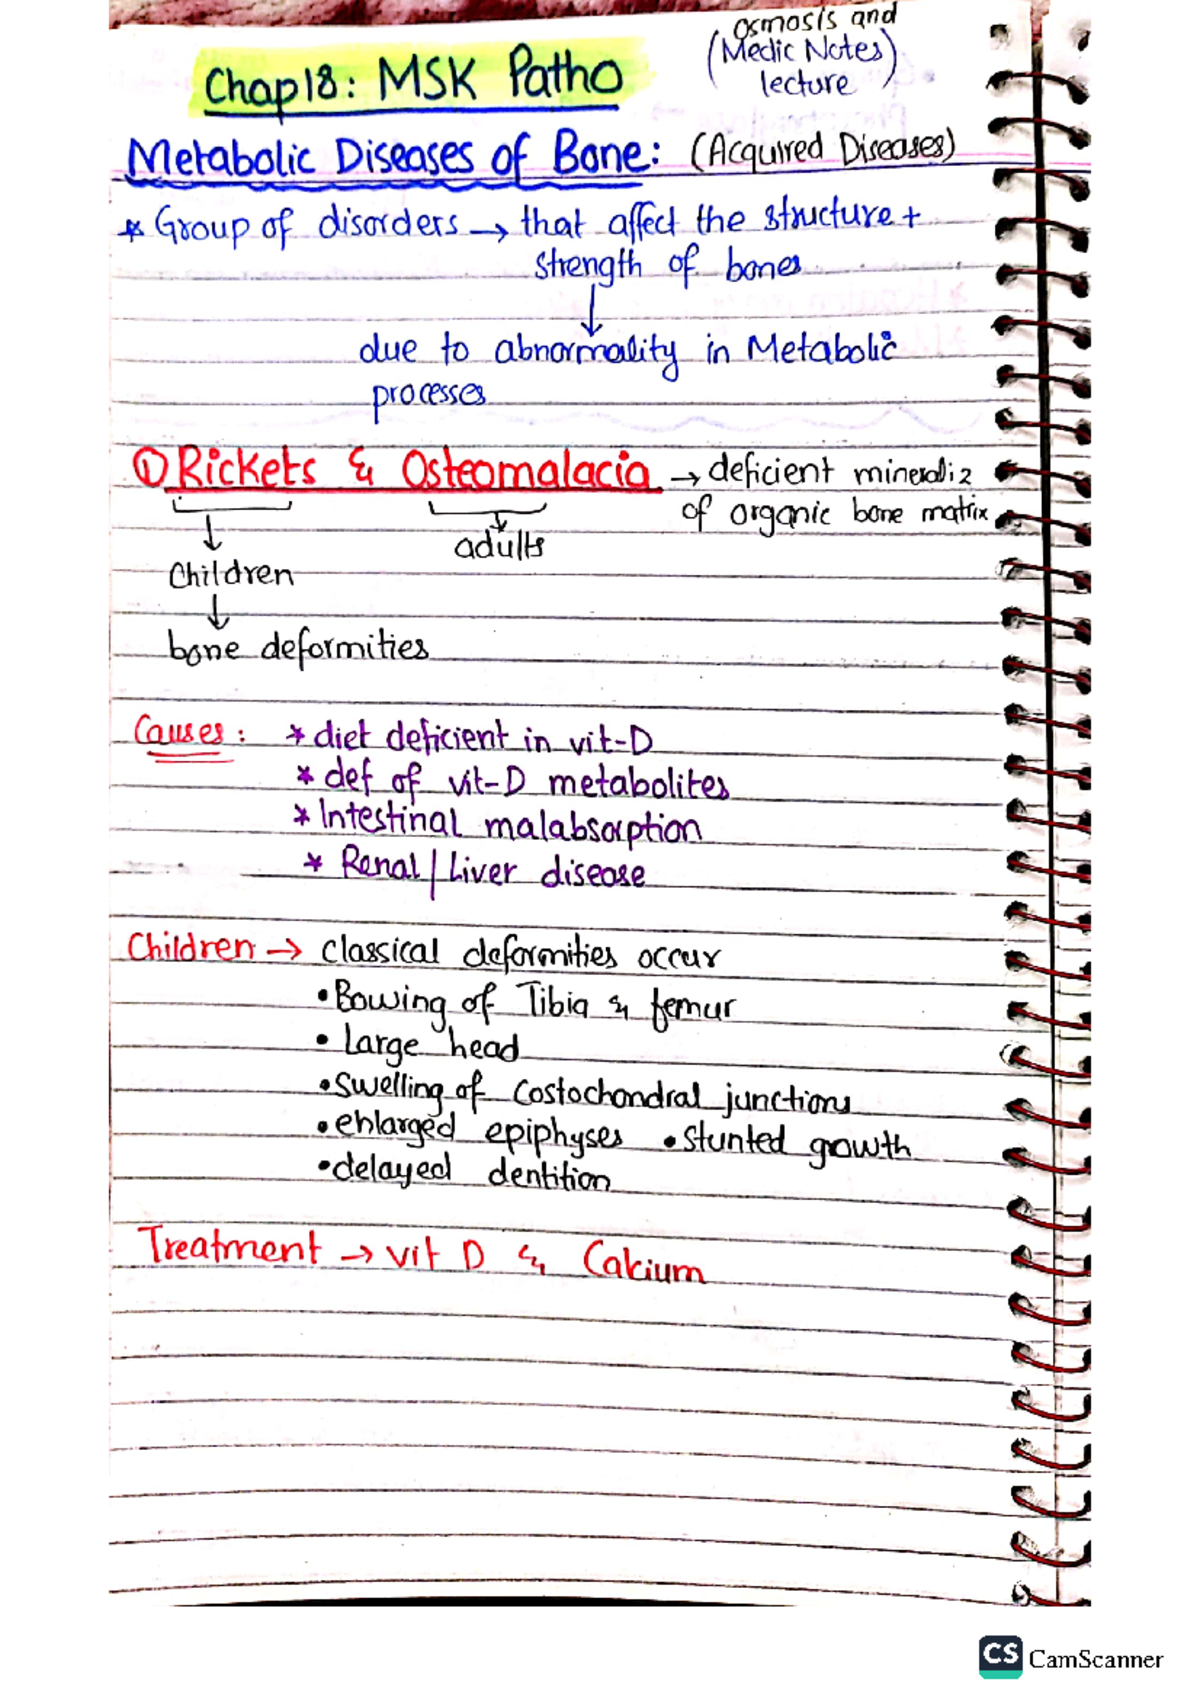 osmosis and
Chap18: MSK Patho (Medic Notes)
lecture
Metabolic Diseases of Bone: (Acquired Diseases)
* Group of disorders → that affect the structure +
strength of bones
↓
due to abnormality in Metabolic
processes
① Rickets & Osteomalacia → deficient mineraliz
of organic bone matrix
↓ ↓
adults
Children
↓
bone deformities
Causes: * diet deficient in vit-D
* def of vit-D metabolites
* Intestinal malabsorption
* Renal/Liver disease
Children → classical deformities occur
• Bowing of Tibia & femur
• Large head
• Swelling of Costochondral junctions
• enlarged epiphyses • stunted growth
• delayed dentition
Treatment → vit D & Calcium
CS CamScanner